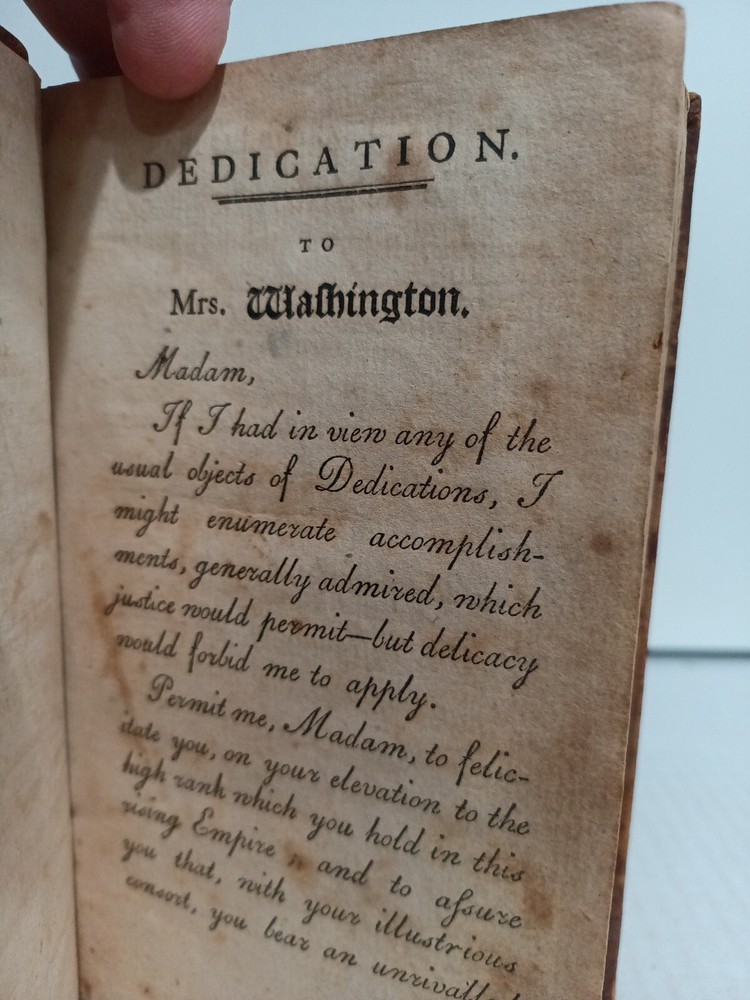 DEDICATION.
TO
Mrs. Waſhington.
Madam,
If I had in view any of the
usual objects of Dedications, I
might enumerate accomplish-
ments, generally admired, which
justice would permit—but delicacy
would forbid me to apply.
Permit me, Madam, to felic-
itate you, on your elevation to the
high rank which you hold in this
rising Empire; and to aſsure
you that, with your illustrious
consort, you bear an